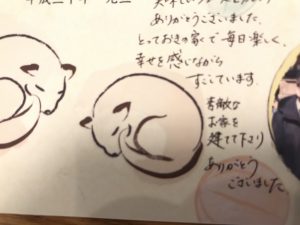 平成二十年 元旦
ありがとうございました。
とっておきの家で毎日楽しく、
幸せを感じながら
すごしています。
素敵な
お家を
建てて下さり
ありがとう
ございました。